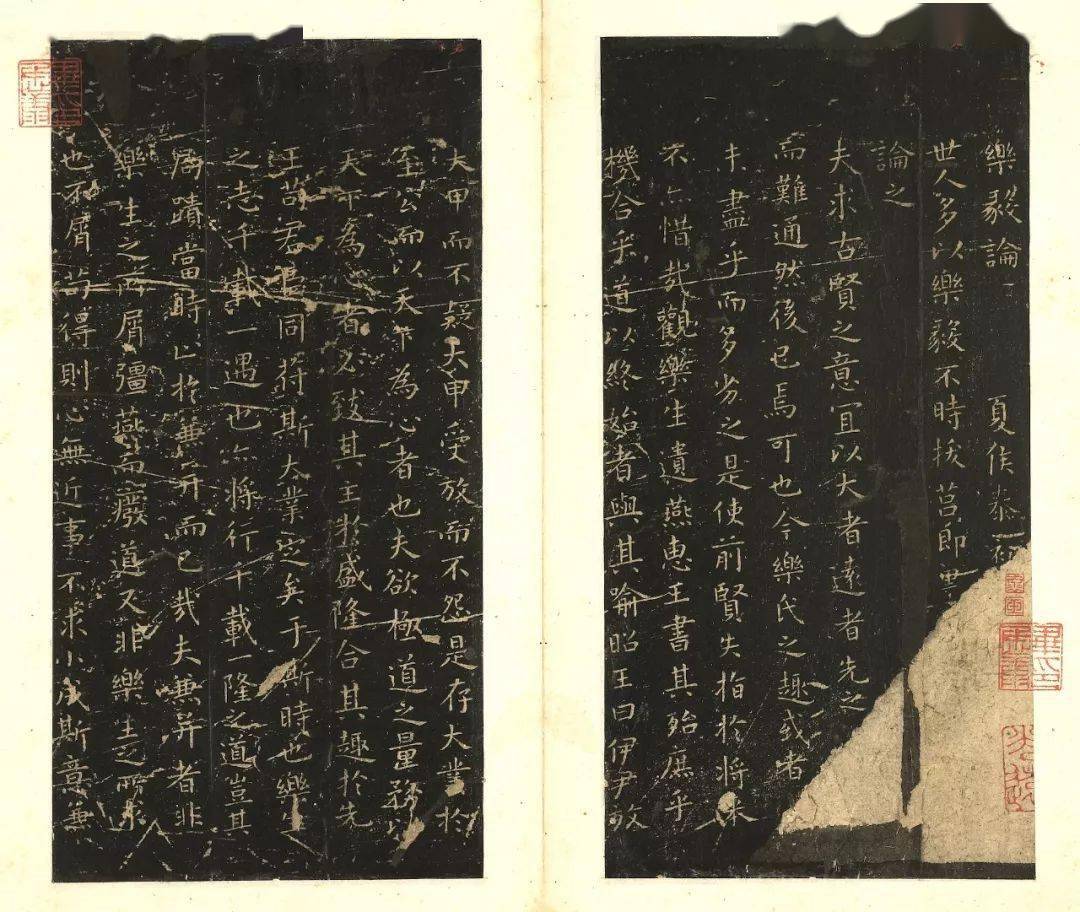 樂毅論 夏侯泰
世人多以樂毅不時拔莒即墨
論之
夫求古賢之意宜以大者遠者先之
而難通然後已焉可也今樂氏之趣或者
未盡乎而多劣之是使前賢失指於將來
不亦惜哉觀樂生遺燕惠王書其殆庶乎
機合乎道以終始者與其喻昭王曰伊尹放
大甲而不疑大甲受放而不怨是存大業於
至公而以天下為心者也夫欲極道之量務以
天下為心者必致其主於盛隆合其趣於先
王苟君臣同符斯大業定矣于斯時也樂生
之志千載一遇也亦將行千載一隆之道豈其
局蹟當時止於兼并而已哉夫兼并者非
樂生之所屑彊燕而廢道又非樂生之所求
也不屑苟得則心無近事不求小成斯意兼